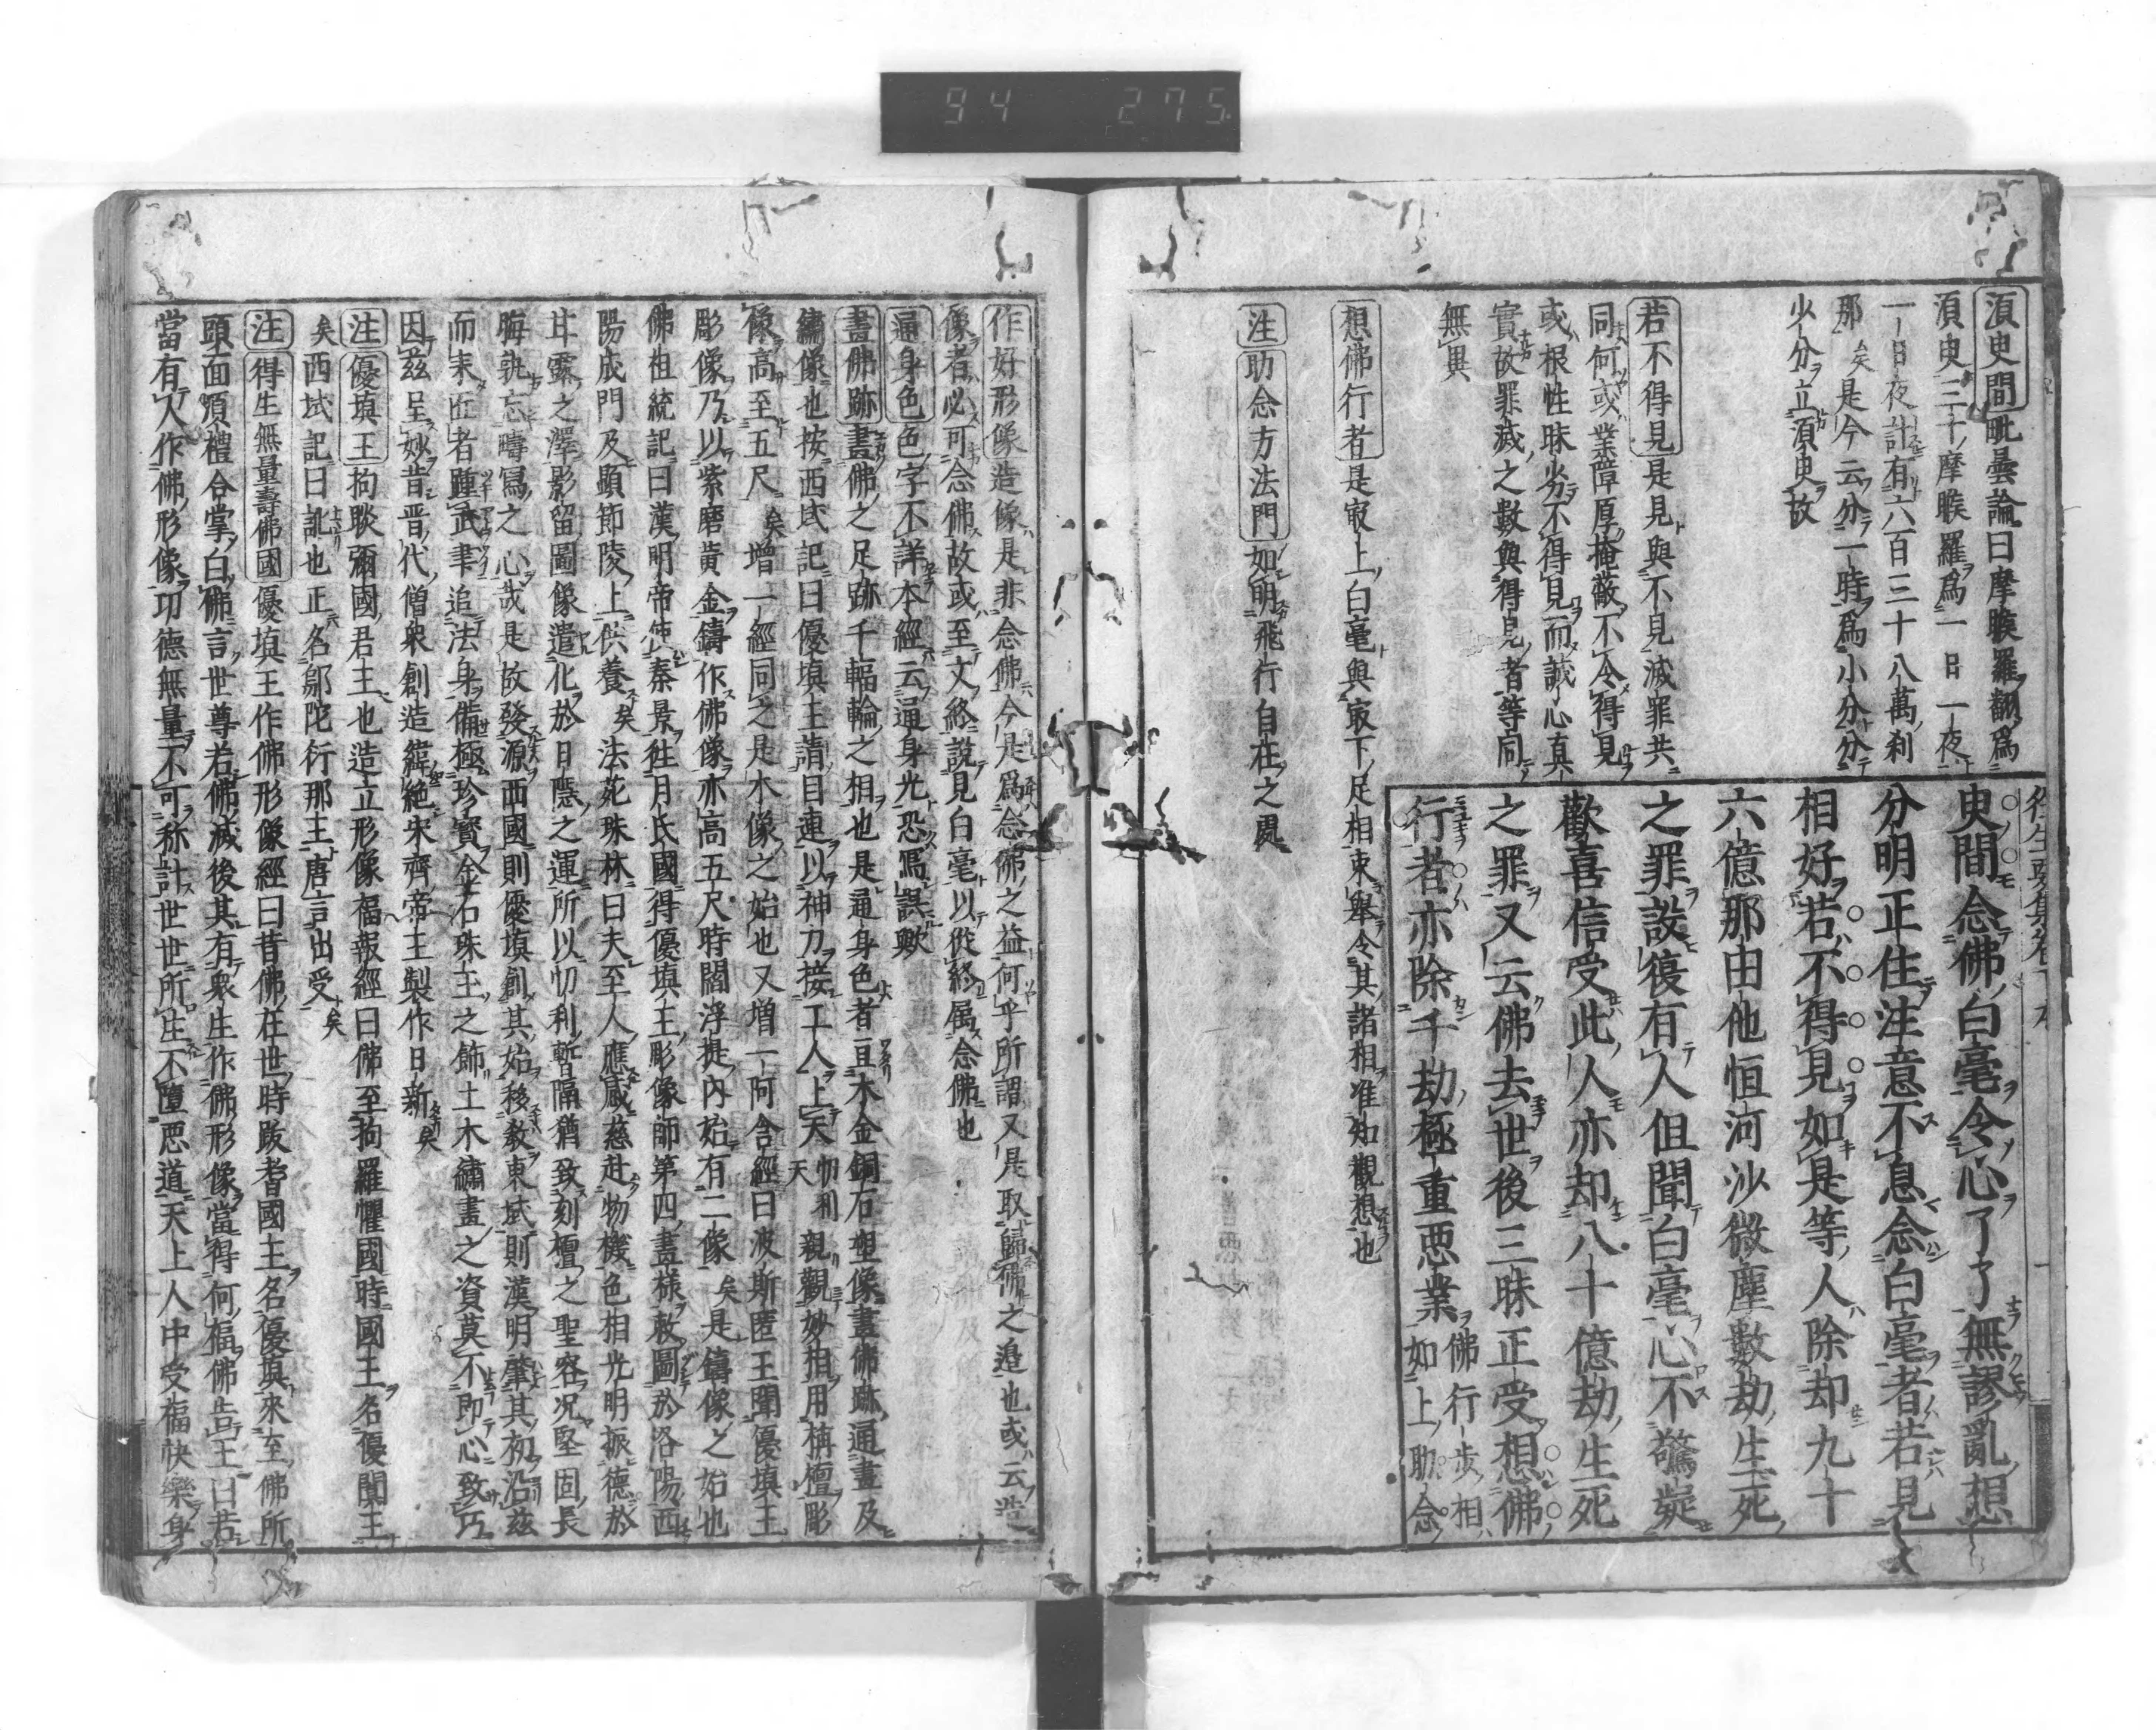 94 275
須臾間毗曇論曰摩睺羅翻爲
須臾三十摩睺羅爲一日一夜
一日夜計有六百三十八萬刹
那矣是今云分一時爲小分分
少分立須臾故
若不得見是見與不見滅罪共
同何或業障厚掩蔽不令得見
或根性昧劣不得見而誠心真
實故罪滅之數與得見者等同
無異
想佛行者是㝡上白毫與㝡下足相束舉令其諸相准知觀想也
注助念方法門如明飛行自在之處
臾間念佛白毫令心了了無謬亂想
分明正住注意不息念白毫者若見
相好若不得見如是等人除却九十
六億那由他恒河沙微塵數劫生死
之罪設復有人但聞白毫心不驚疑
歡喜信受此人亦却八十億劫生死
之罪又云佛去世後三昧正受想佛
行者亦除千劫極重悪業佛行步相如上助念
作好形像造像是非念佛今是爲念佛之益何乎所謂又是取歸佛之邉也或云造
像者必可念佛故或至文終說見白毫以從終属念佛也
遍身色色字不詳本經云遍身光恐寫誤歟
畫佛跡畫佛之足跡千輻輪之相也是遍身色者亘木金銅石塑像畫佛跡通畫及
繡像也按西域記曰優填王請目連以神力接工人上天忉利天親觀妙相用栴檀彫
像高至五尺矣增一經同之是木像之始也又増一阿含經曰波斯匿王聞優填王
彫像乃以紫磨黄金鑄作佛像亦高五尺時閻浮提内始有二像矣是鑄像之始也
佛祖統記曰漢明帝使秦景徃月氏國得優填王彫像師第四畫樣敕圖於洛陽西
陽成門及顯節陵上供養矣法苑珠林曰夫至人應感慈赴物機色相光明振德於
甘露之澤影留圖像遣化於日隱之運所以忉利暫隔猶致刻檀之聖容况堅固長
晦孰忘疇寫之心哉是故發源西國則優填創其始移教東域則漢明肇其初沿茲
而来匠者踵武聿追法身備極珍寶金石珠玉之飾土木繡畫之資莫不即心致巧
因茲呈妙昔晋代僧衆創造緯絶宋齊帝王製作日新矣
注優填王拘睒彌國君主也造立形像福報經曰佛至拘羅懼國時國王名優闐王
矣西域記曰訛也正名鄔陀衍那王唐言出受矣
注得生無量壽佛國優填王作佛形像經曰昔佛在世時跋耆國王名優填來至佛所
頭面頂禮合掌白佛言世尊若佛滅後其有衆生作佛形像當得何福佛告王曰若
當有人作佛形像功德無量不可称計世世所生不墮悪道天上人中受福快樂身